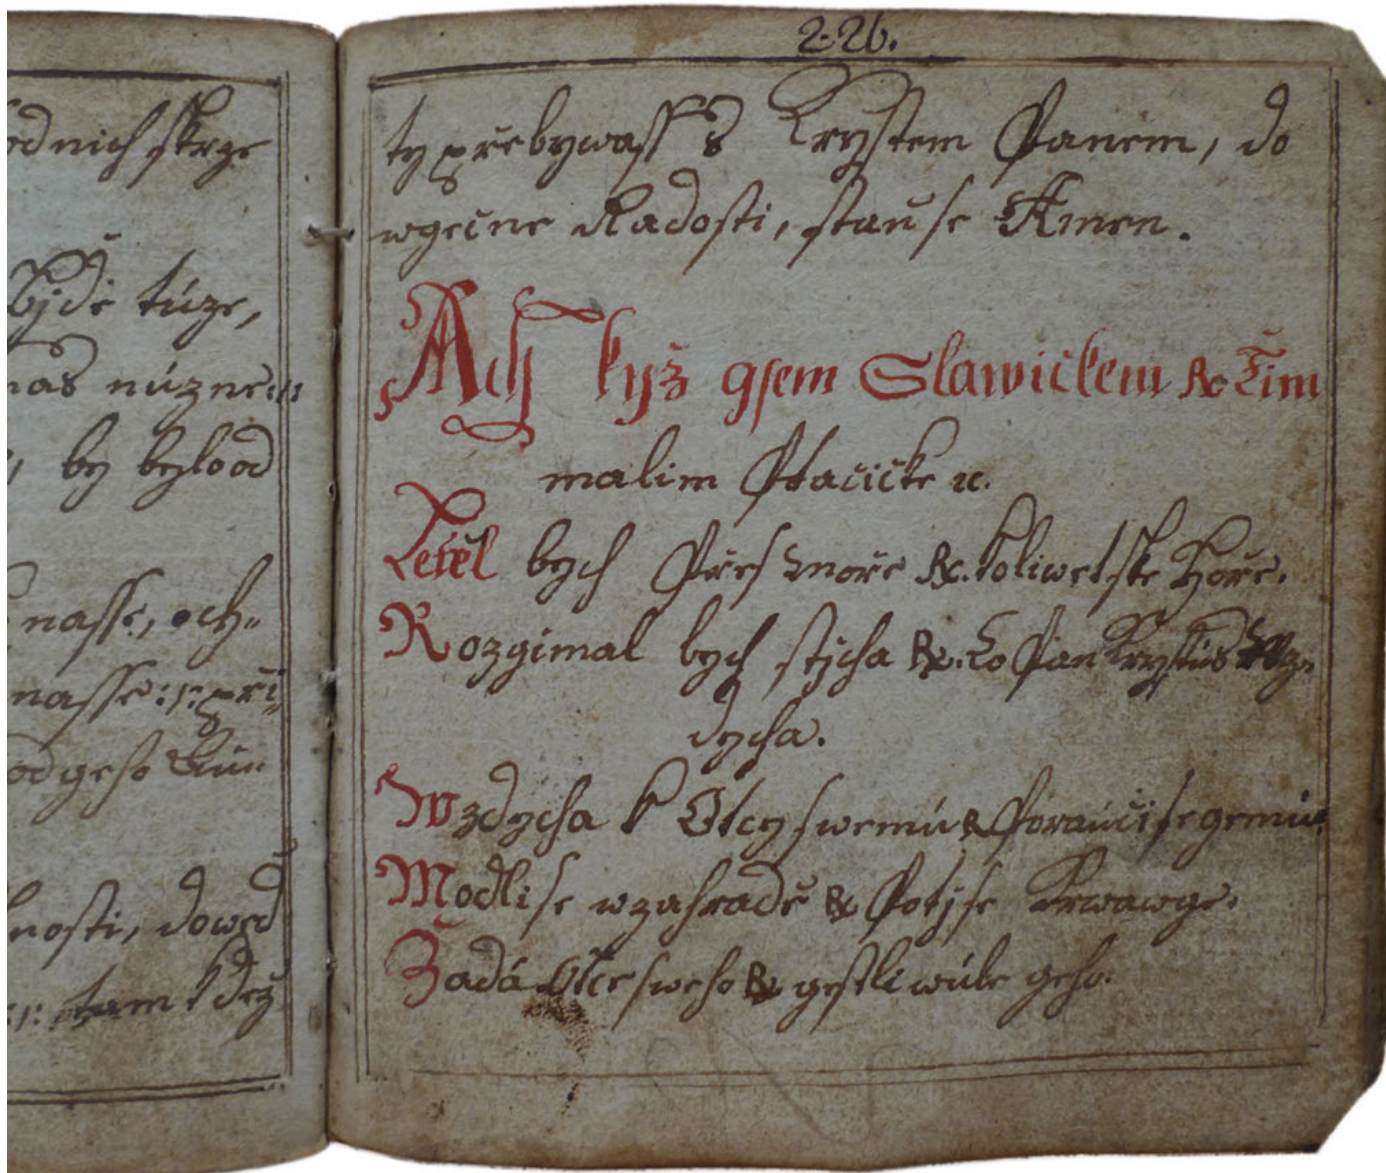 od nich skrze
túze,
nás núzne:/:
by bylo od
nasse, och=
nasse :/: při
od geho
nosti, dowed
:/: tam kdez
226.
ty přebywass s Krystem Panem, do
wgečne Radosti, stan se Amen.
Ach kyž gsem Slawičkem R. Tim
malim Ptačičke ꝛc.
Letěl bych Přes moře R. k oliwetske Hoře.
Rozgimal bych stycha R. Co Pan Krystus Wz=
dycha.
Wzdycha k Otcy swemú R Poraučí se gemú.
Modli se w zahradě R Potj se Krwawge.
Žadá Otce sweho R gestli wúle geho.